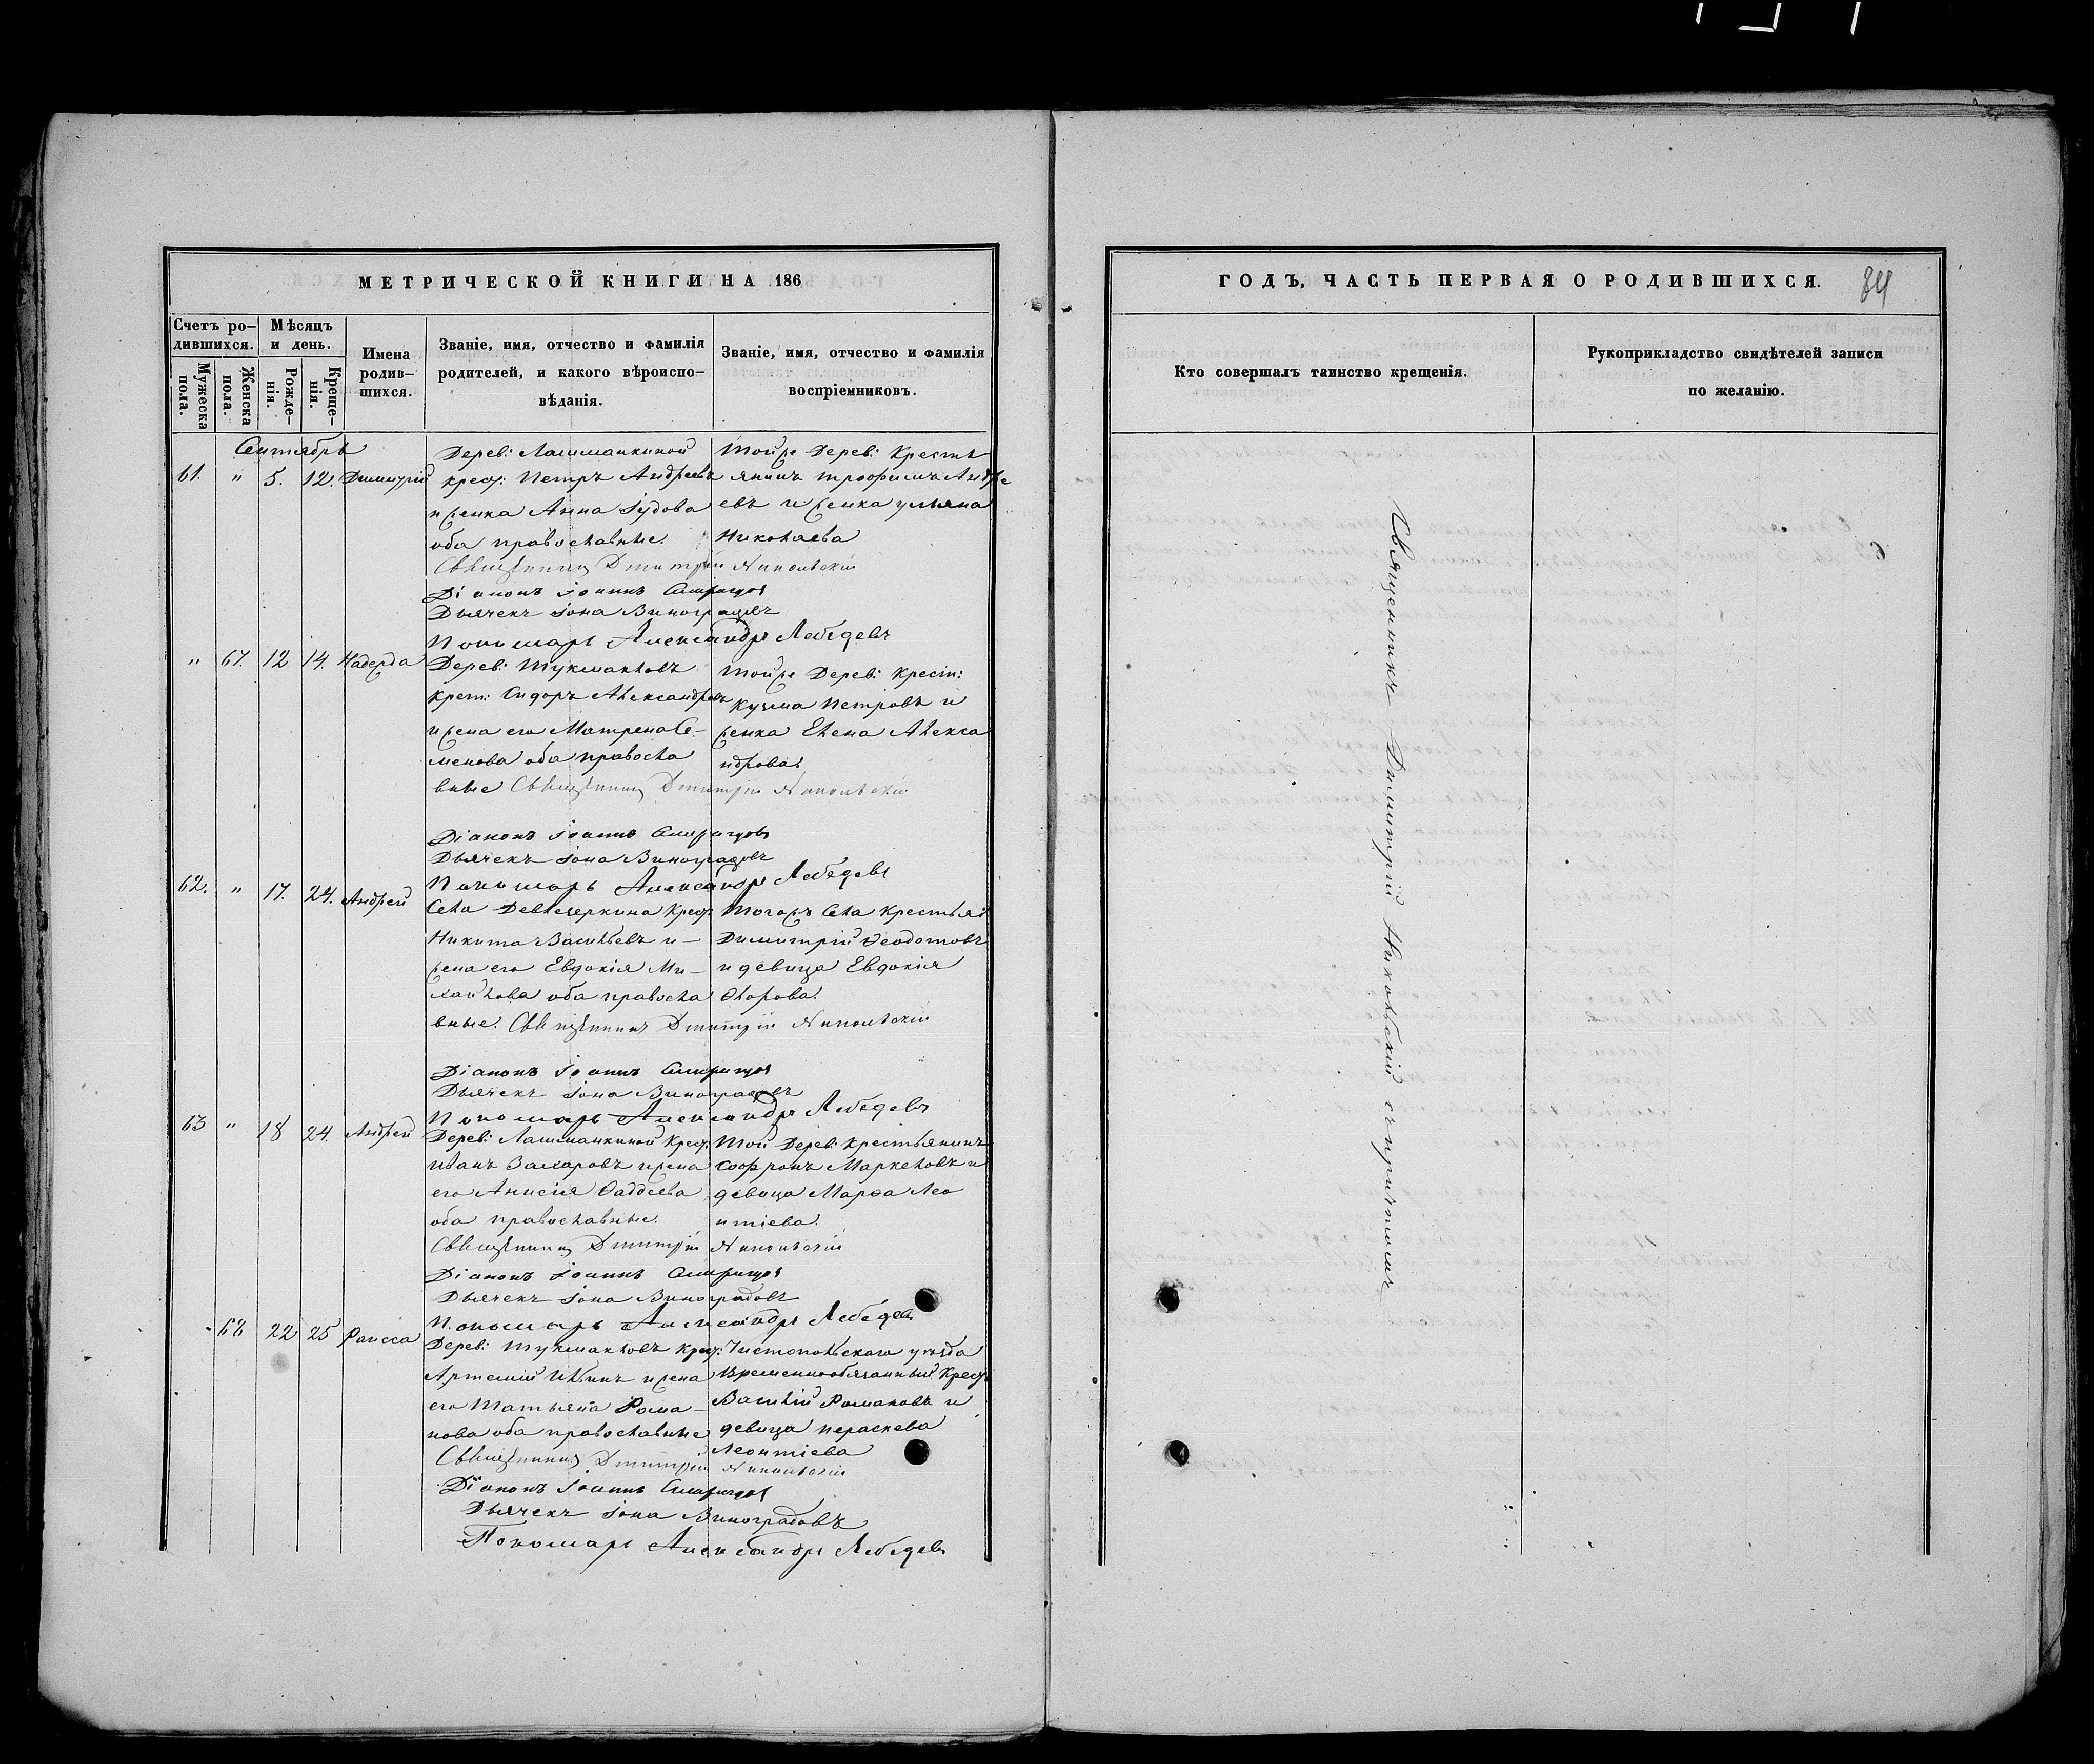 МЕТРИЧЕСКОЙ КНИГИ НА 186
Счетъ ро-
дившихся.
Мѣсяцъ
и день.
Мужеска
пола.
Женска
пола.
Рожде-
нія.
Креще-
нія.
Имена
родив-
шихся.
Званіе, имя, отчество и фамилія
родителей, и какого вѣроиспо-
вѣданія.
Званіе, имя, отчество и фамилія
воспріемниковъ.
Сентябрь
61. " 5. 12. Димитрій
Дерев: Лашманкиной
крест: Петръ Андреевъ
и женка Анна Іудова
оба православные.
Тойже Дерев: Кресть
янинъ Трофимъ Андре
евъ и женка Ульяна
Николаева
Священникъ Димитрій Никольскій
Діаконъ Іоаннъ
Дьячекъ Іона Виноградовъ
Пономарь Александръ Лебедевъ
" 67. 12 14. Надежда
Дерев: Тукмакловъ
крест: Сидоръ Александровъ
и жена его Матрена Се-
менова оба правосла
вные
Тойже Дерев: Крест:
Кузма Петровъ и
женка Елена Алекса
ндрова.
Священникъ Димитрій Никольскій
Діаконъ Іоаннъ
Дьячекъ Іона Виноградовъ
Пономарь Александръ Лебедевъ
62. " 17. 24. Андрей
Села Девлезеркина Крест:
Никита Васильевъ и-
жена его Евдокія Ми-
хайлова оба правосла
вные.
Тогожъ Села Крестья:
Димитрій Феодотовъ
и девица Евдокія
Флорова.
Священникъ Димитрій Никольскій
Діаконъ Іоаннъ
Дьячекъ Іона Виноградовъ
Пономарь Александръ Лебедевъ
63 " 18 24. Андрей
Дерев: Лашманкиной Крест:
Иванъ Захаровъ и жена
его Анисія Фаддеева
оба православные.
Той Дерев: Крестьянинъ
Софронъ Маркеловъ и
девица Марфа Лео
нтіева.
Священникъ Димитрій Никольскій
Діаконъ Іоаннъ
Дьячекъ Іона Виноградовъ
Пономарь Александръ Лебедевъ
68 22 25 Раисса
Дерев: Тукмакловъ Крест:
Артемій Ильинъ и жена
его Татьяна Рома-
нова оба православные
Чистопольскаго уѣзда
Временнообязанный Крест:
Василій Романовъ и
девица Пераскева
Леонтіева
Священникъ Димитрій Никольскій
Діаконъ Іоаннъ
Дьячекъ Іона Виноградовъ
Пономарь Александръ Лебедевъ
ГОДЪ, ЧАСТЬ ПЕРВАЯ О РОДИВШИХСЯ.
84
Кто совершалъ таинство крещенія.
Рукоприкладство свидѣтелей записи
по желанію.
Священникъ Димитрій Никольскій съ причтомъ